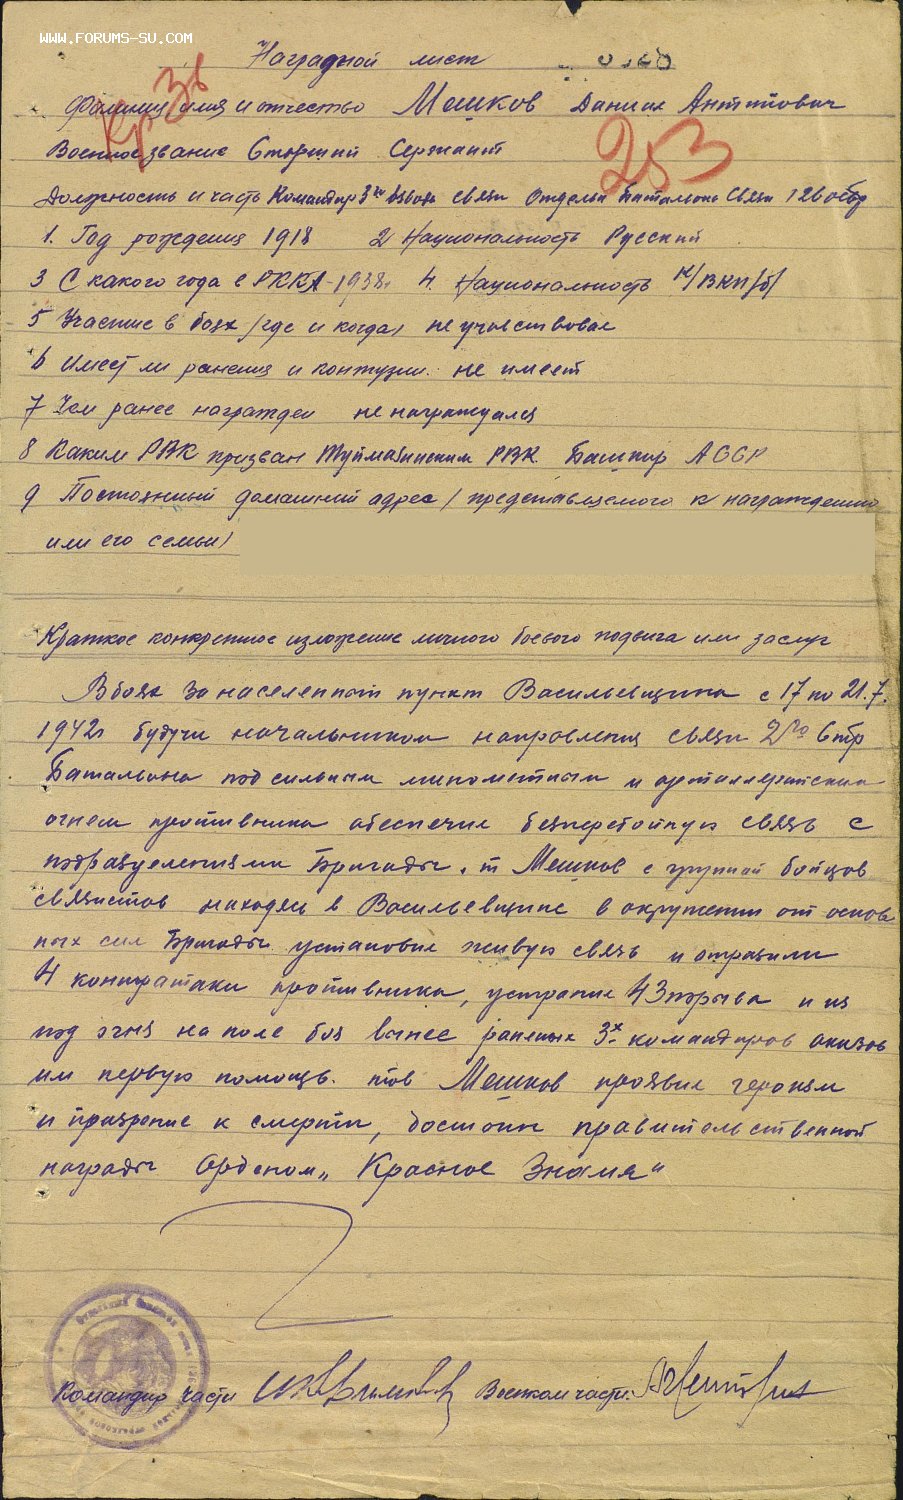 WWW.FORUMS-SU.COM
Наградной лист
Кр Зв
Фамилия имя и отчество Мешков Даниил Антипович
253
Военное звание Старший Сержант
Должность и часть Командир 3го взвода связи Отдельн Батальона Связи 126 осбр
1. Год рождения 1918 2 Национальность Русский
3 С какого года в РККА - 1938г 4. Национальность к/ВКП/б/
5 Участие в боях /где и когда/ не участвовал
6 Имеет ли ранения и контузии. не имеет
7 Чем ранее награжден не награждался
8 Каким РВК призван Туймазинским РВК Башкир АССР
9 Постоянный домашний адрес /представляемого к награждению
или его семьи/
Краткое конкретное изложение личного боевого подвига или заслуг
В боях за населенный пункт Васильевщина с 17 по 21.7.
1942г будучи начальником направления связи 2го Стр
Батальона под сильным минометным и артиллерийским
огнем противника обеспечил безперебойную связь с
подразделениями Бригады. т Мешков с группой бойцов
связистов находясь в Васильевщине в окружении от основ
ных сил Бригады установил живую связь и отразили
4 контратаки противника, устранил 43 порыва и из
под огня на поле боя вынес раненых 3х командиров оказав
им первую помощь. тов Мешков проявил героизм
и призрение к смерти, достоин правительственной
награды Орденом „Красное Знамя"
Командир части Военком части: